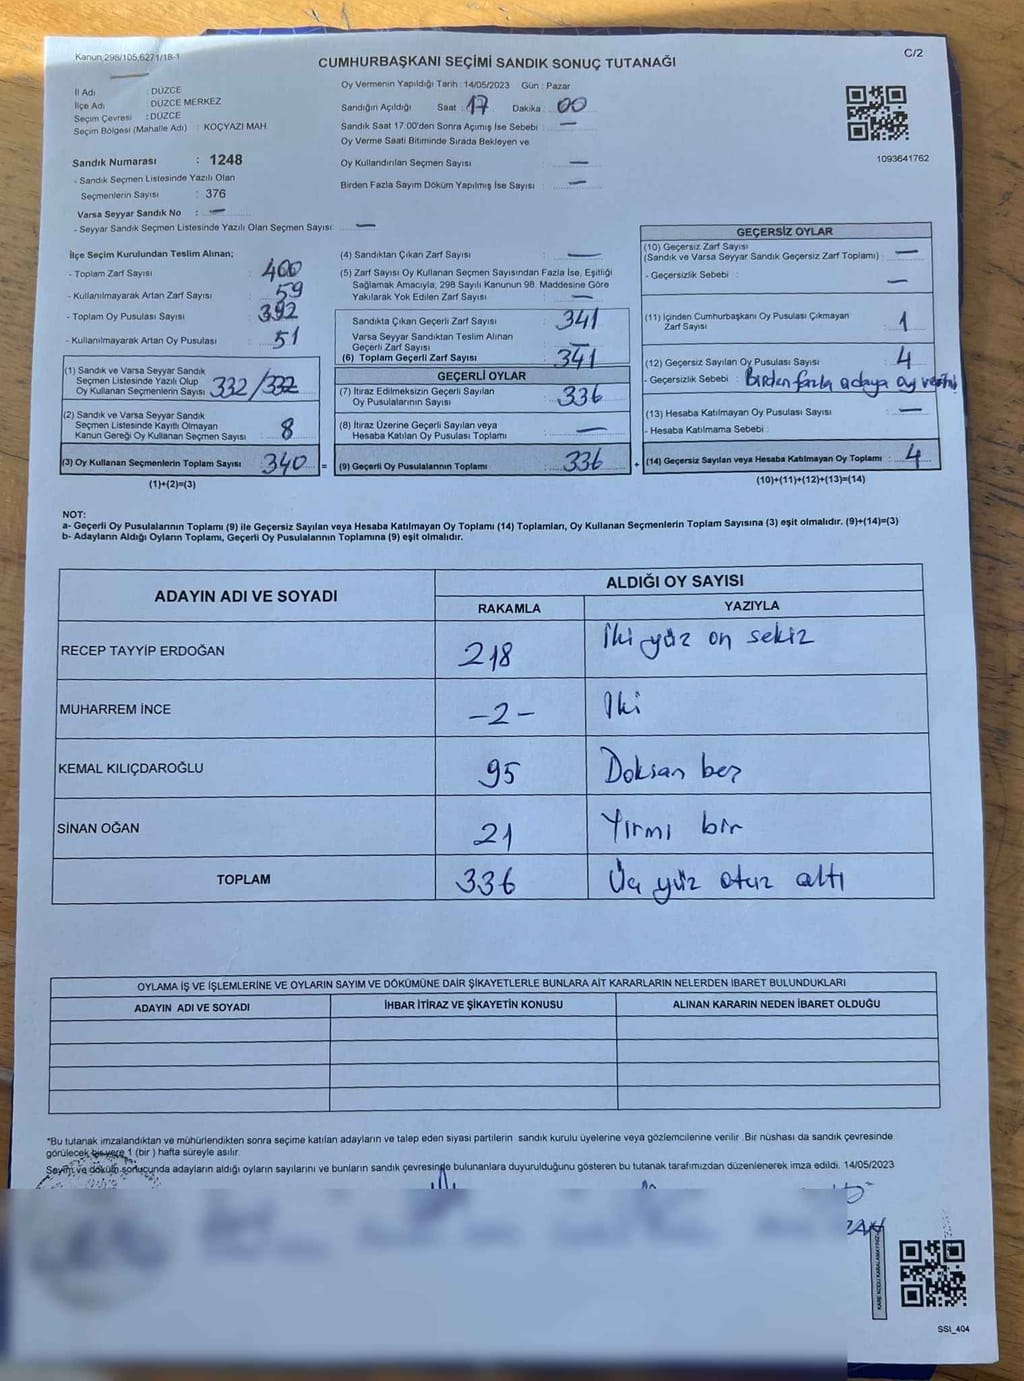 Kanun:298/105,6271/18-1
C/2
CUMHURBAŞKANI SEÇİMİ SANDIK SONUÇ TUTANAĞI
İl Adı : DÜZCE
İlçe Adı : DÜZCE MERKEZ
Seçim Çevresi : DÜZCE
Seçim Bölgesi (Mahalle Adı) : KOÇYAZI MAH.
Sandık Numarası : 1248
- Sandık Seçmen Listesinde Yazılı Olan
Seçmenlerin Sayısı : 376
Varsa Seyyar Sandık No : —
- Seyyar Sandık Seçmen Listesinde Yazılı Olan Seçmen Sayısı: —
Oy Vermenin Yapıldığı Tarih : 14/05/2023 Gün : Pazar
Sandığın Açıldığı Saat : 17 Dakika : 00
Sandık Saat 17.00'den Sonra Açımış İse Sebebi : —
Oy Verme Saati Bitiminde Sırada Bekleyen ve
Oy Kullandırılan Seçmen Sayısı : —
Birden Fazla Sayım Döküm Yapılmış İse Sayısı : —
1093641762
İlçe Seçim Kurulundan Teslim Alınan;
- Toplam Zarf Sayısı : 400
- Kullanılmayarak Artan Zarf Sayısı : 59
- Toplam Oy Pusulası Sayısı : 392
- Kullanılmayarak Artan Oy Pusulası : 51
(1) Sandık ve Varsa Seyyar Sandık
Seçmen Listesinde Yazılı Olup
Oy Kullanan Seçmenlerin Sayısı 332/332
(2) Sandık ve Varsa Seyyar Sandık
Seçmen Listesinde Kayıtlı Olmayan
Kanun Gereği Oy Kullanan Seçmen Sayısı : 8
(3) Oy Kullanan Seçmenlerin Toplam Sayısı : 340
(1)+(2)=(3)
(4) Sandıktan Çıkan Zarf Sayısı : —
(5) Zarf Sayısı Oy Kullanan Seçmen Sayısından Fazla İse, Eşitliği
Sağlamak Amacıyla, 298 Sayılı Kanunun 98. Maddesine Göre
Yakılarak Yok Edilen Zarf Sayısı : —
Sandıkta Çıkan Geçerli Zarf Sayısı : 341
Varsa Seyyar Sandıktan Teslim Alınan
Geçerli Zarf Sayısı : —
(6) Toplam Geçerli Zarf Sayısı : 341
GEÇERLİ OYLAR
(7) İtiraz Edilmeksizin Geçerli Sayılan
Oy Pusulalarının Sayısı : 336
(8) İtiraz Üzerine Geçerli Sayılan veya
Hesaba Katılan Oy Pusulası Toplamı : —
= (9) Geçerli Oy Pusulalarının Toplamı : 336 +
GEÇERSİZ OYLAR
(10) Geçersiz Zarf Sayısı
(Sandık ve Varsa Seyyar Sandık Geçersiz Zarf Toplamı) : —
- Geçersizlik Sebebi : —
(11) İçinden Cumhurbaşkanı Oy Pusulası Çıkmayan
Zarf Sayısı : 1
(12) Geçersiz Sayılan Oy Pusulası Sayısı : 4
- Geçersizlik Sebebi : Birden fazla adaya oy
(13) Hesaba Katılmayan Oy Pusulası Sayısı : —
- Hesaba Katılmama Sebebi :
(14) Geçersiz Sayılan veya Hesaba Katılmayan Oy Toplamı : 4
(10)+(11)+(12)+(13)=(14)
NOT:
a- Geçerli Oy Pusulalarının Toplamı (9) ile Geçersiz Sayılan veya Hesaba Katılmayan Oy Toplamı (14) Toplamları, Oy Kullanan Seçmenlerin Toplam Sayısına (3) eşit olmalıdır. (9)+(14)=(3)
b- Adayların Aldığı Oyların Toplamı, Geçerli Oy Pusulalarının Toplamına (9) eşit olmalıdır.
ADAYIN ADI VE SOYADI ALDIĞI OY SAYISI
RAKAMLA YAZIYLA
RECEP TAYYİP ERDOĞAN 218 İki yüz on sekiz
MUHARREM İNCE -2- İki
KEMAL KILIÇDAROĞLU 95 Doksan beş
SİNAN OĞAN 21 Yirmi bir
TOPLAM 336 Üç yüz otuz altı
OYLAMA İŞ VE İŞLEMLERİNE VE OYLARIN SAYIM VE DÖKÜMÜNE DAİR ŞİKAYETLERLE BUNLARA AİT KARARLARIN NELERDEN İBARET BULUNDUKLARI
ADAYIN ADI VE SOYADI İHBAR İTİRAZ VE ŞİKAYETİN KONUSU ALINAN KARARIN NEDEN İBARET OLDUĞU
*Bu tutanak imzalandıktan ve mühürlendikten sonra seçime katılan adayların ve talep eden siyasi partilerin sandık kurulu üyelerine veya gözlemcilerine verilir .Bir nüshası da sandık çevresinde
görülecek bir yere 1 (bir ) hafta süreyle asılır.
Sayım ve döküm sonucunda adayların aldığı oyların sayılarını ve bunların sandık çevresinde bulunanlara duyurulduğunu gösteren bu tutanak tarafımızdan düzenlenerek imza edildi. 14/05/2023
KARE KODU KARALAMAYINIZ
SSI_404